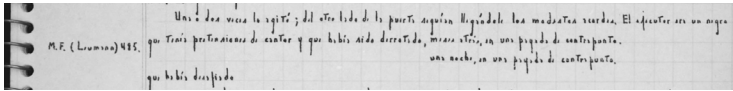 Una o dos veces lo agitó; del otro lado de la puerta seguían llegándole los modestos acordes. El ejecutor era un negro
M.F. (Losmano) 485. que tenía pretensiones de cantor y que había sido derrotado, meses atrás, en una payada de contrapunto.
una noche, en una payada de contrapunto.
que había desafiado